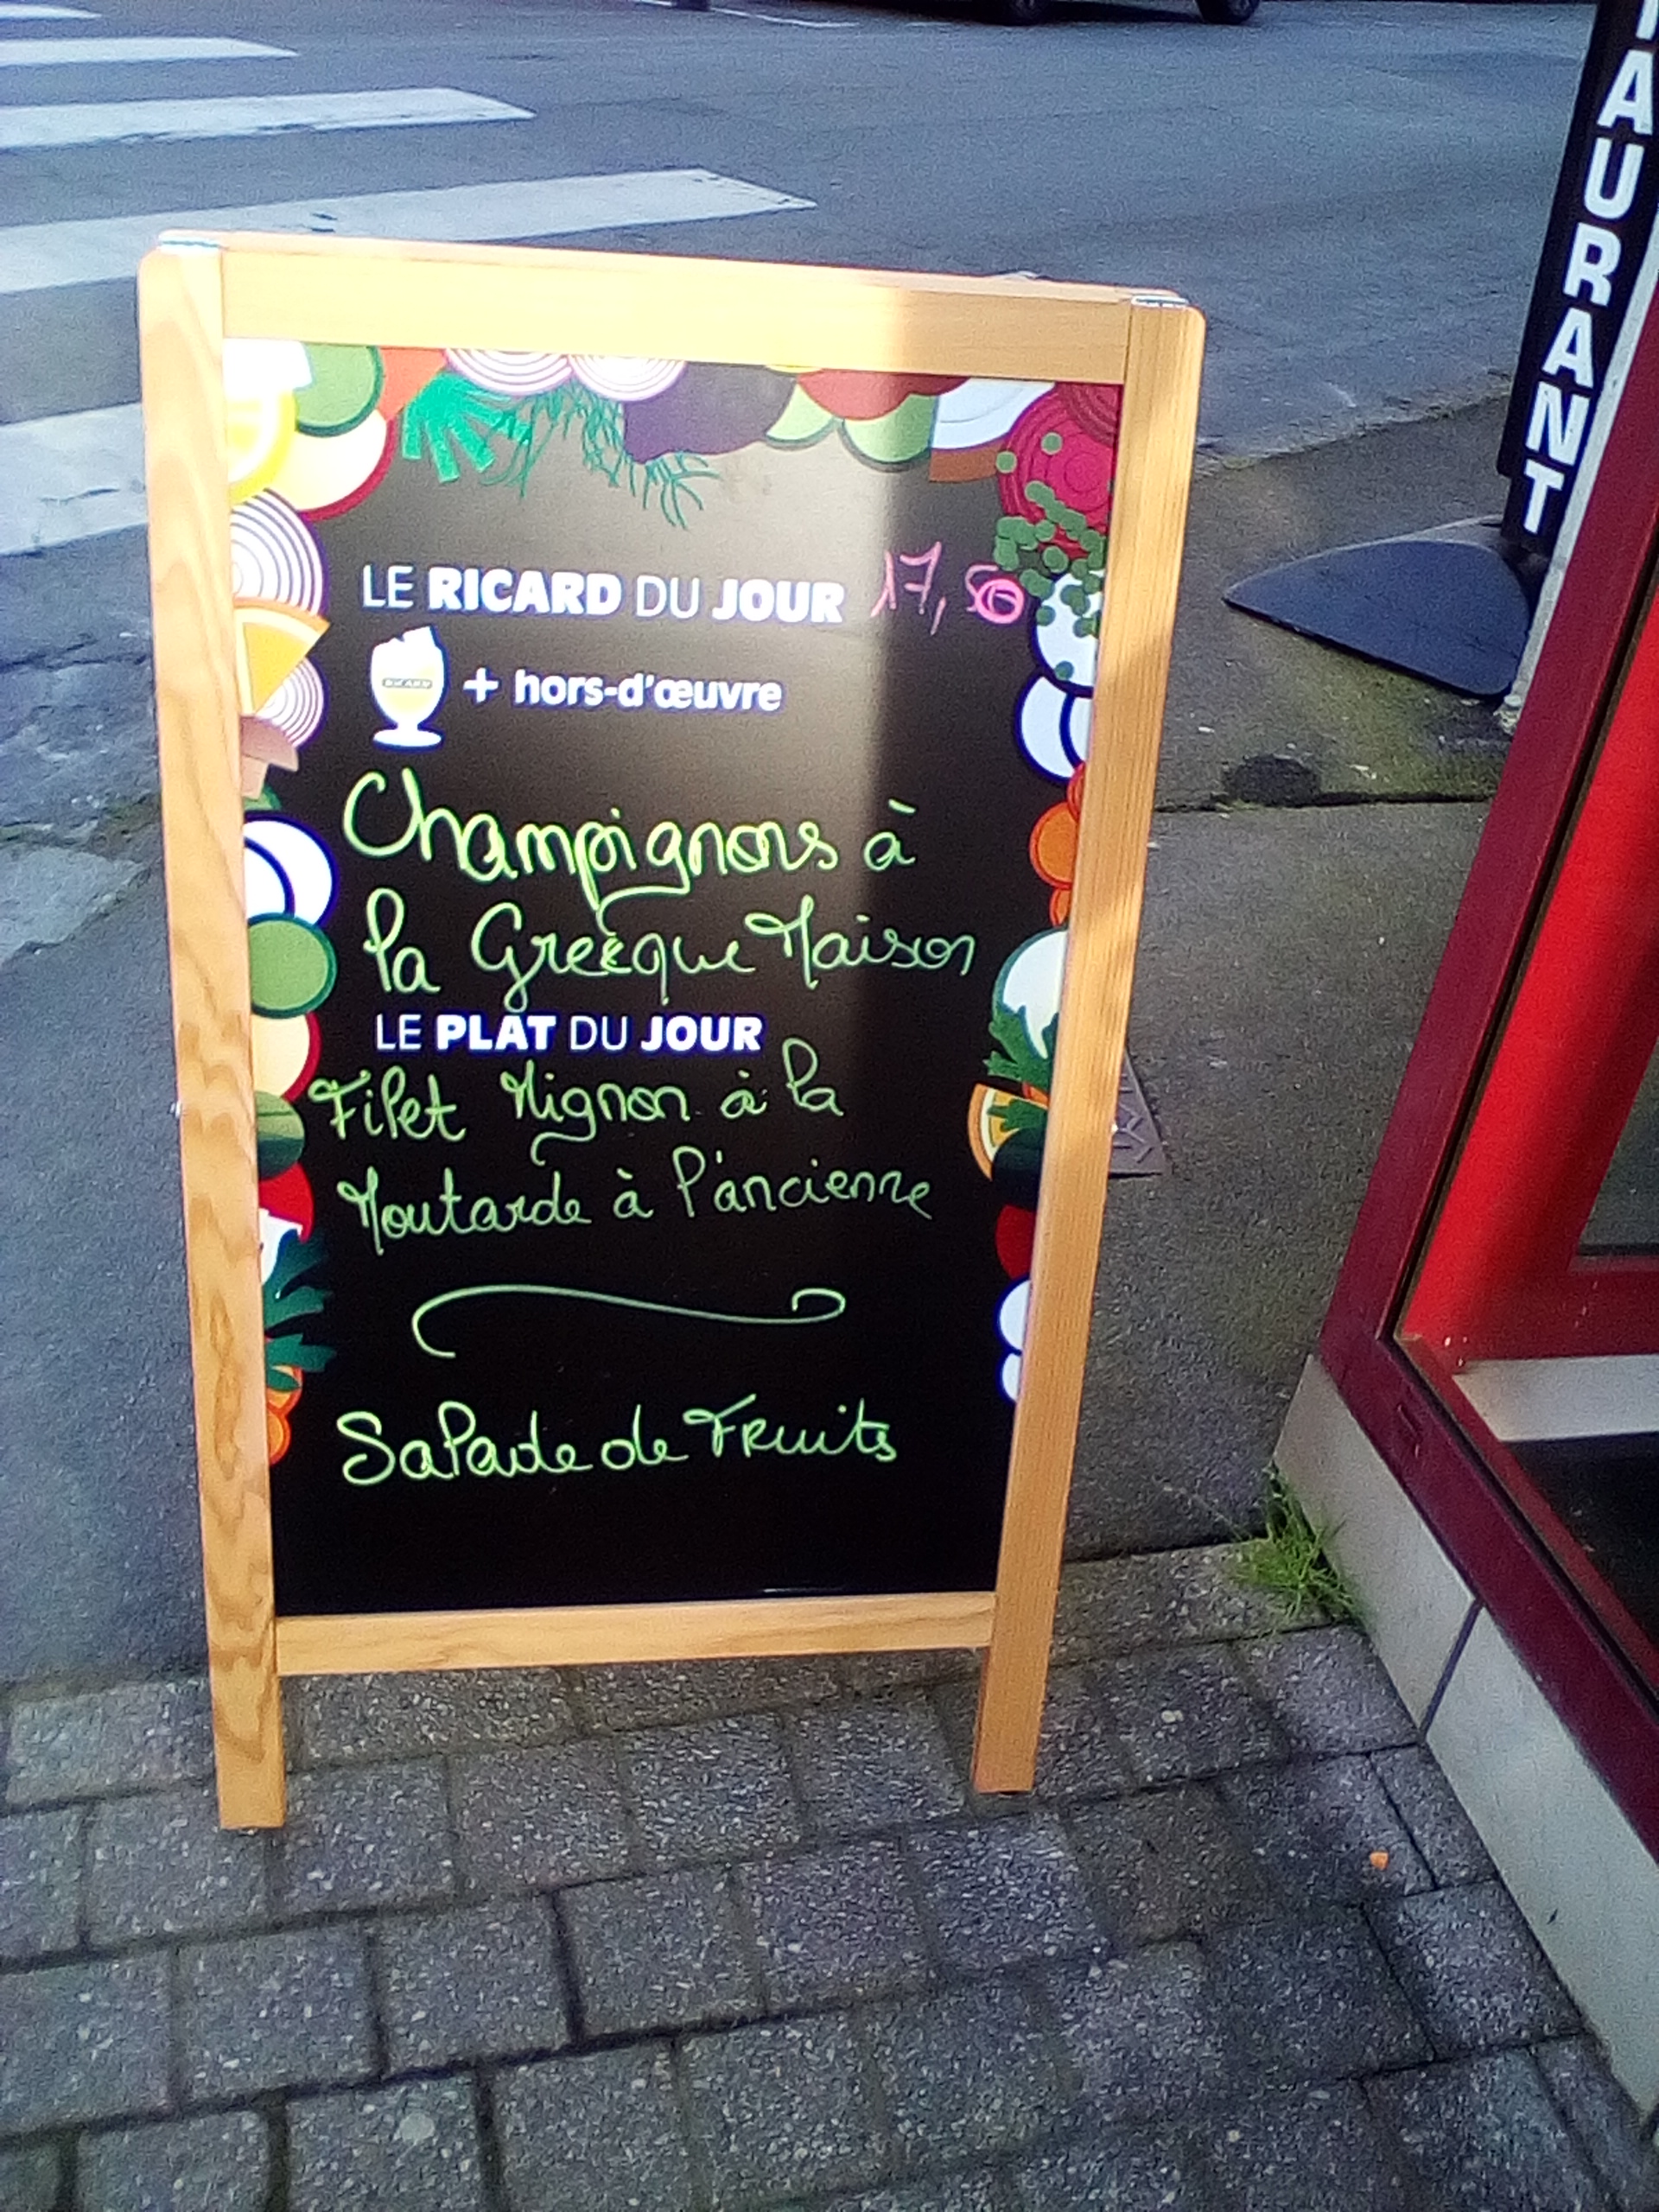 TAURANT
LE RICARD DU JOUR 17,50
RICARD
+ hors-d'œuvre
Champignons à
la Grecque Maison
LE PLAT DU JOUR
Filet Mignon à la
Moutarde à l'ancienne
Salade de Fruits